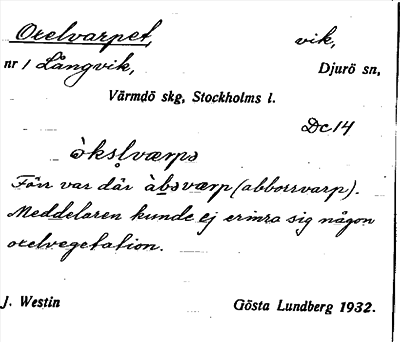 Oxelvarpet, vik,
nr 1 Långvik, Djurö sn,
Värmdö skg, Stockholms l.
Dc 14
òksl̥værpə
Förr var där àbəværp (abborrvarp).
Meddelaren kunde ej erinra sig någon
oxelvegetation.
J. Westin Gösta Lundberg 1932.